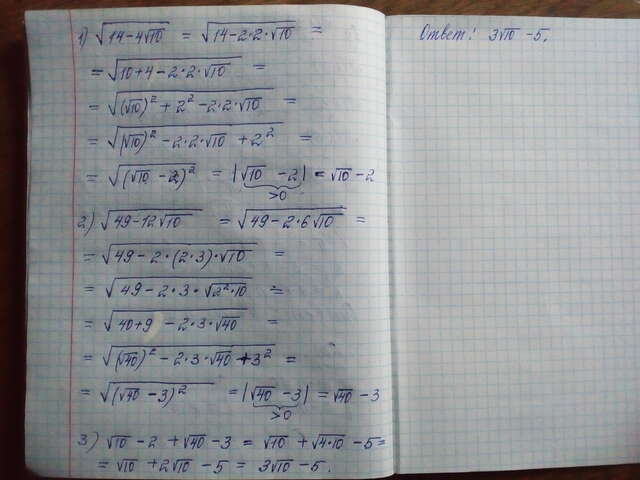 1) √(14-4√10) = √(14-2·2·√10) =
= √(10+4-2·2·√10) =
= √((√10)² + 2² - 2·2·√10) =
= √((√10)² - 2·2·√10 + 2²) =
= √((√10 - 2)²) = |√10 - 2| = √10 - 2
>0
2) √(49-12√10) = √(49-2·6√10) =
= √(49-2·(2·3)·√10) =
= √(49-2·3·√(2²·10)) =
= √(40+9 - 2·3·√40) =
= √((√40)² - 2·3·√40 + 3²) =
= √((√40 - 3)²) = |√40 - 3| = √40 - 3
>0
3) √10 - 2 + √40 - 3 = √10 + √(4·10) - 5 =
= √10 + 2√10 - 5 = 3√10 - 5.
Ответ: 3√10 - 5.